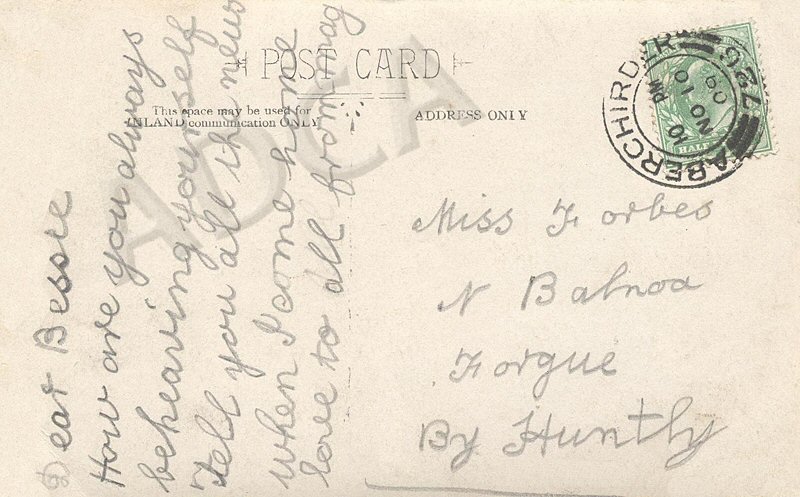 POST CARD
This space may be used for
INLAND communication ONLY
ADDRESS ONLY
ABERCHIRDER
10 PM
NO 10
09
226
HALF
ADCA
Dear Bessie
How are you always
beheaving yourself
Tell you all the news
when I come home
love to all from mag
Miss Forbes
N Balnoa
Forgue
By Huntly